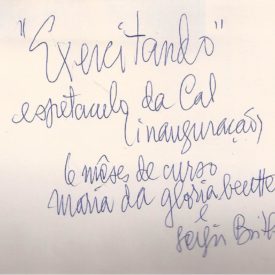 "Exercitando"
espetaculo da Cal
(inauguração)
6 mêses de curso
maria da gloria beutte
e
Sergio Britto